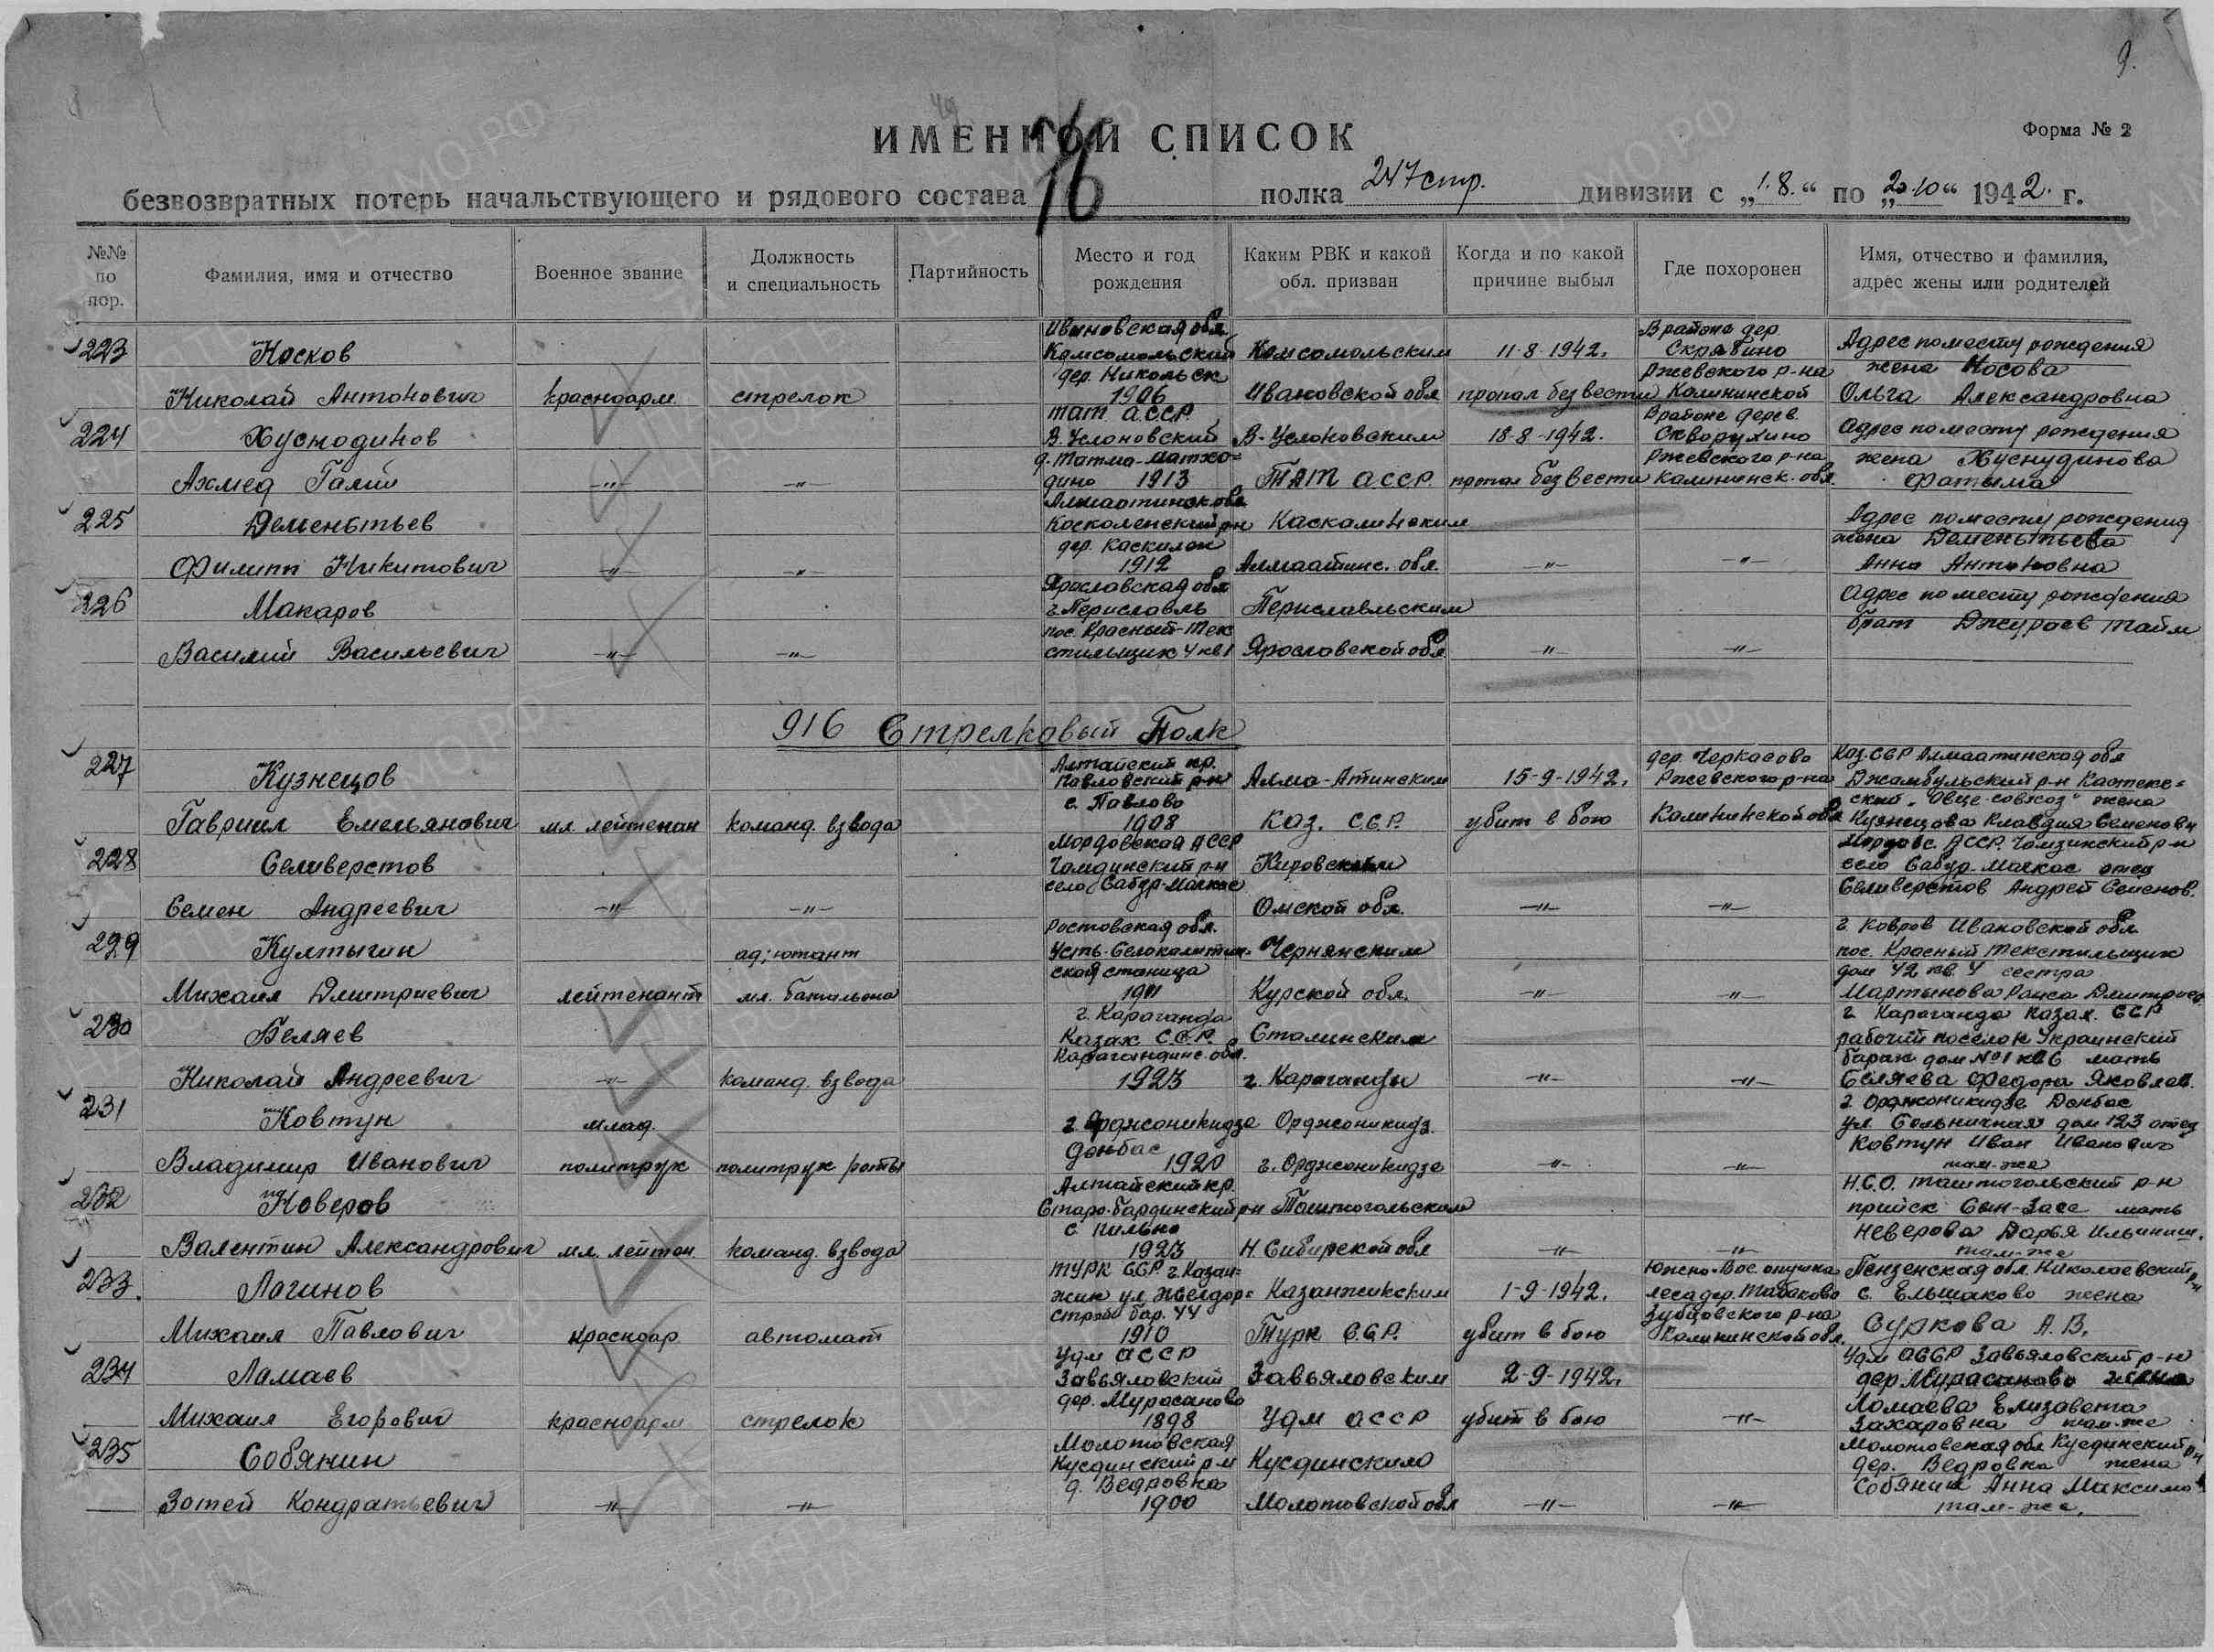 9.
ИМЕННОЙ СПИСОК
Форма № 2
безвозвратных потерь начальствующего и рядового состава полка 247 стр. дивизии с „1.8.“ по „20.10“ 1942. г.
76
№№ по пор.
Фамилия, имя и отчество
Военное звание
Должность и специальность
Партийность
Место и год рождения
Каким РВК и какой обл. призван
Когда и по какой причине выбыл
Где похоронен
Имя, отчество и фамилия, адрес жены или родителей
223 Носков Николай Антонович красноарм. стрелок Ивановская обл. Комсомольский дер. Никольск 1906 Комсомольским Ивановской обл 11-8-1942. пропал без вести В районе дер. Скрябино Ржевского р-на Калининской Адрес по месту рождения жена Носова Ольга Александровна
224 Хуснодинов Ахмед Галий -"- -"- Тат. АССР. В. Услоновский д. Татма-Матхо= дино 1913 В-Услоновским ТАТ АССР. 18-8-1942. пропал без вести В районе дерев. Скворухино Ржевского р-на Калининск. обл. Адрес по месту рождения жена Хуснудинова Фатыма
225 Деменьтьев Филипп Никитович -"- -"- Алмаатинск обл Косколенский рн дер. Каскилен 1912 Каскалинским Алмаатинс. обл. -"- -"- Адрес по месту рождения жена Деменьтьева Анна Антоновна
226 Макаров Василий Васильевич -"- -"- Ярославская обл г. Периславль пос. Красный-Тек стильщик 4 кв 1 Периславльским Ярославской обл -"- -"- Адрес по месту рождения брат Джураев Тайм
916 Стрелковый Полк
227 Кузнецов Гавриил Емельянович мл. лейтенан команд. взвода Алтайский кр. Павловский р-н с. Павлово 1908 Алма-Атинским Каз. С.С.Р. 15-9-1942. убит в бою дер. Черкасово Ржевского р-на Калининской обл Каз.ССР Алмаатинская обл Джамбульский р-н Кастекс= ский „Овце-совхоз“ жена Кузнецова Клавдия Семеновн
228 Селиверстов Семен Андреевич -"- -"- Мордовская АССР Чамзинский р-н село Сабур-Мачкас Кировским Омской обл. -"- -"- Мордовс. АССР. Чамзинский р-н село Сабур. Мачкас отец Селиверстов Андрей Семенов.
229 Култыгин Михаил Дмитриевич лейтенант ад;ютант мл. батильона Ростовская обл. Усть-Белокалитин- ская станица 1911 Чернянским Курской обл. -"- -"- г. Ковров Ивановской обл. пос. Красный Текстильщик дом 42 кв. 4 сестра Мартынова Раиса Дмитриев
230 Беляев Николай Андреевич -"- команд. взвода г. Караганда Казах С.С.Р. Карагандинс. обл. 1923 Сталинским г. Караганды -"- -"- г. Караганда Казах. ССР рабочий поселок Украинский барак дом №1 кв 6 мать Беляева Федора Яковлев.
231 Ковтун Владимир Иванович млад. политрук политрук роты г. Орджоникидзе Донбас 1920 Орджоникидз. г. Орджоникидзе -"- -"- г. Орджоникидзе Донбас ул. Больничная дом 123 отец Ковтун Иван Иванович там-же
232 Новеров Валентин Александрович мл. лейтен. команд. взвода Алтайский кр. Старо-Бардинский р-н с Пильно 1923 Таштогольским Н. Сибирской обл -"- -"- Н.С.О. Таштогольский р-н прийск Сын-Засс мать Неверова Дарья Ильинич. там-же
233. Логинов Михаил Павлович красноар автомат ТУРК ССР г. Казан= жик ул. Желдор= строй бар. 44 1910 Казанжикским Турк С.С.Р. 1-9-1942. убит в бою Южно-Вос. опушка леса дер. Табаково Зубцовского р-на Калининской обл. Пензенская обл. Николаевский рн с. Ельшаково жена Суркова А.В.
234 Ламаев Михаил Егорович красноарм стрелок Удм АССР Завьяловский дер. Мурасаново 1898 Завьяловским Удм АССР 2-9-1942. убит в бою -"- Удм АССР Завьяловский р-н дер Мурасаново жена Ломаева Елизавета Захаровна там-же
235 Собянин Зотей Кондратьевич -"- -"- Молотовская Куединский р-н д. Ведровка 1900 Куединским Молотовской обл -"- -"- Молотовская обл Куединский рн дер. Ведровка жена Собянин Анна Максимо там-же.